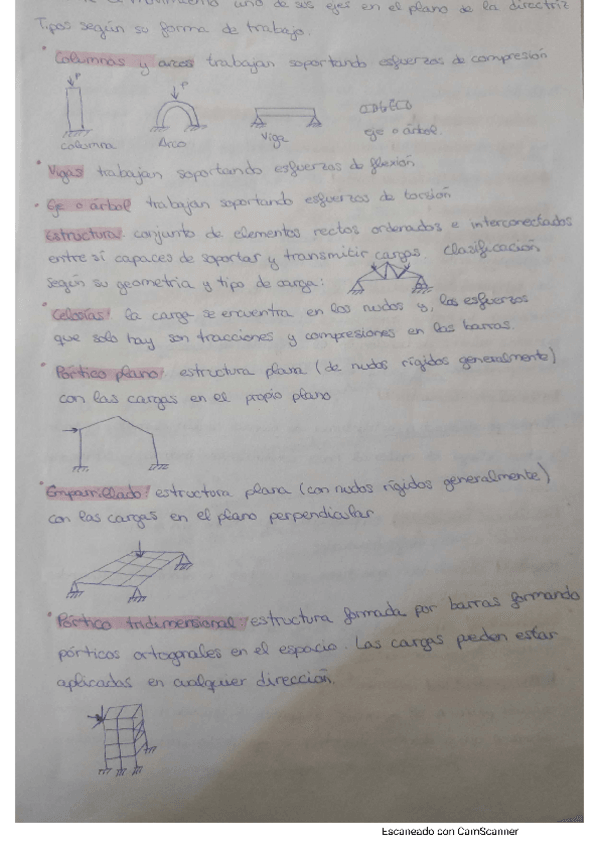 movimiento uno de sus ejes en el plano de la directriz
Tipos según su forma de trabajo.
• Columnas y arcos trabajan soportando esfuerzos de compresión
P
P
columna
Arco
Viga
eje o árbol.
• Vigas trabajan soportando esfuerzos de flexión
• Eje o árbol trabajan soportando esfuerzos de torsión
Estructura: conjunto de elementos rectos ordenados e interconectados
entre sí capaces de soportar y transmitir cargas. Clasificación
según su geometría y tipo de carga:
• Celosías: la carga se encuentra en los nudos y, los esfuerzos
que solo hay son tracciones y compresiones en las barras.
• Pórtico plano: estructura plana (de nudos rígidos generalmente)
con las cargas en el propio plano.
• Emparrillado: estructura plana (con nudos rígidos generalmente)
con las cargas en el plano perpendicular
• Pórtico tridimensional: estructura formada por barras formando
pórticos ortogonales en el espacio. Las cargas pueden estar
aplicadas en cualquier dirección.
Escaneado con CamScanner